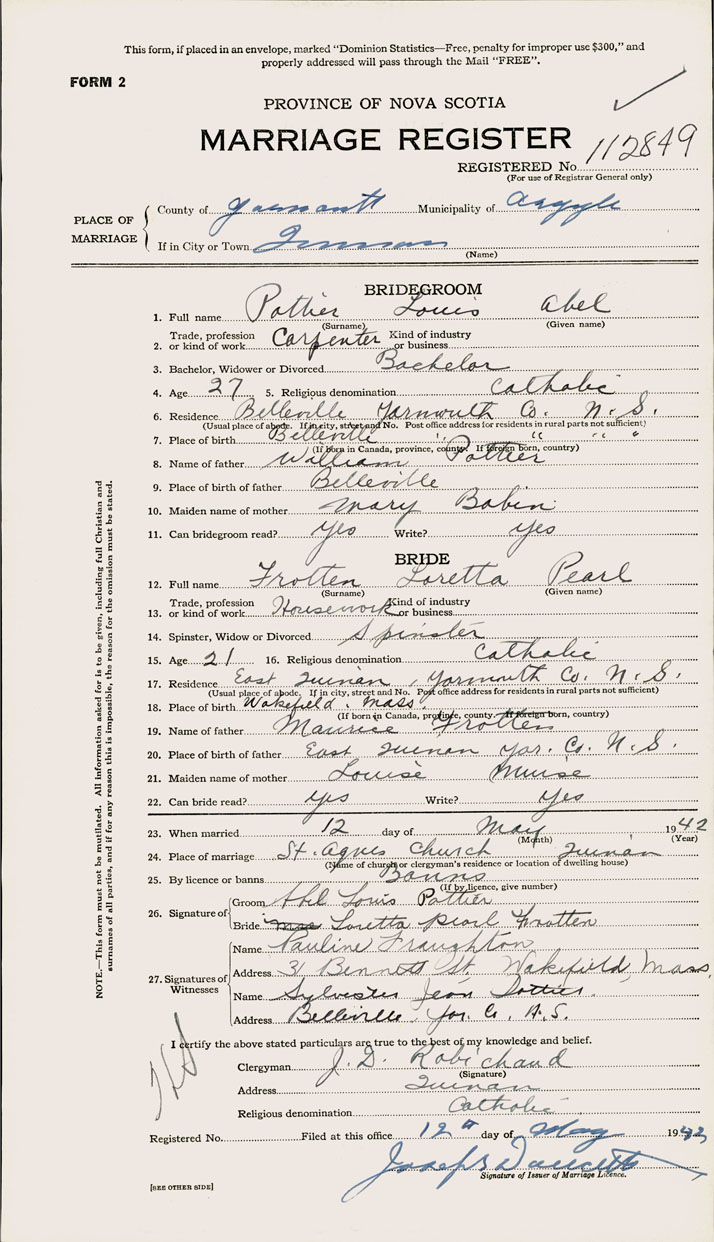 This form, if placed in an envelope, marked "Dominion Statistics—Free, penalty for improper use $300," and
properly addressed will pass through the Mail "FREE".
FORM 2
PROVINCE OF NOVA SCOTIA
MARRIAGE REGISTER
REGISTERED No. 112849
(For use of Registrar General only)
PLACE OF MARRIAGE
County of Yarmouth Municipality of Argyle
If in City or Town
(Name)
BRIDEGROOM
1. Full name Pottier Louis Abel
(Surname) (Given name)
2. Trade, profession or kind of work Carpenter Kind of industry or business
3. Bachelor, Widower or Divorced Bachelor
4. Age 27 5. Religious denomination Catholic
6. Residence Belleville Yarmouth Co. N. S.
(Usual place of abode. If in city, street and No. Post office address for residents in rural parts not sufficient)
7. Place of birth Belleville " " " "
(If born in Canada, province, county. If foreign born, country)
8. Name of father William Pottier
9. Place of birth of father Belleville
10. Maiden name of mother Mary Babin
11. Can bridegroom read? yes Write? yes
BRIDE
12. Full name Frotten Loretta Pearl
(Surname) (Given name)
13. Trade, profession or kind of work Housework Kind of industry or business
14. Spinster, Widow or Divorced Spinster
15. Age 21 16. Religious denomination Catholic
17. Residence East Quinan, Yarmouth Co. N. S.
(Usual place of abode. If in city, street and No. Post office address for residents in rural parts not sufficient)
18. Place of birth Wakefield, Mass.
(If born in Canada, province, county. If foreign born, country)
19. Name of father Maurice Frotten
20. Place of birth of father East Quinan Yar. Co. N. S.
21. Maiden name of mother Louise Muise
22. Can bride read? yes Write? yes
23. When married 12 day of May 1942
(Month) (Year)
24. Place of marriage St. Agnes Church Quinan
(Name of church or clergyman's residence or location of dwelling house)
25. By licence or banns Banns
(If by licence, give number)
26. Signature of
Groom Abel Louis Pottier
Bride Loretta Pearl Frotten
27. Signatures of Witnesses
Name Pauline Fraughton
Address 31 Bennett St. Wakefield, Mass,
Name Sylvester Jean Pottier.
Address Belleville, Yar. Co, N. S.
I certify the above stated particulars are true to the best of my knowledge and belief.
Clergyman J. D. Robichaud
(Signature)
Address Quinan
Religious denomination Catholic
Registered No. Filed at this office 12th day of May 1942
Joseph Doucette
Signature of Issuer of Marriage Licence.
[SEE OTHER SIDE]
NOTE.—This form must not be mutilated. All information asked for is to be given, including full Christian and
surnames of all parties, and if for any reason this is impossible, the reason for the omission must be stated.